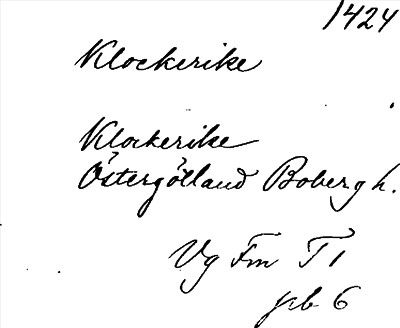 1424
Klockerike
Klockerike
Östergötland Boberg h.
Vg Fm T 1
prb 6